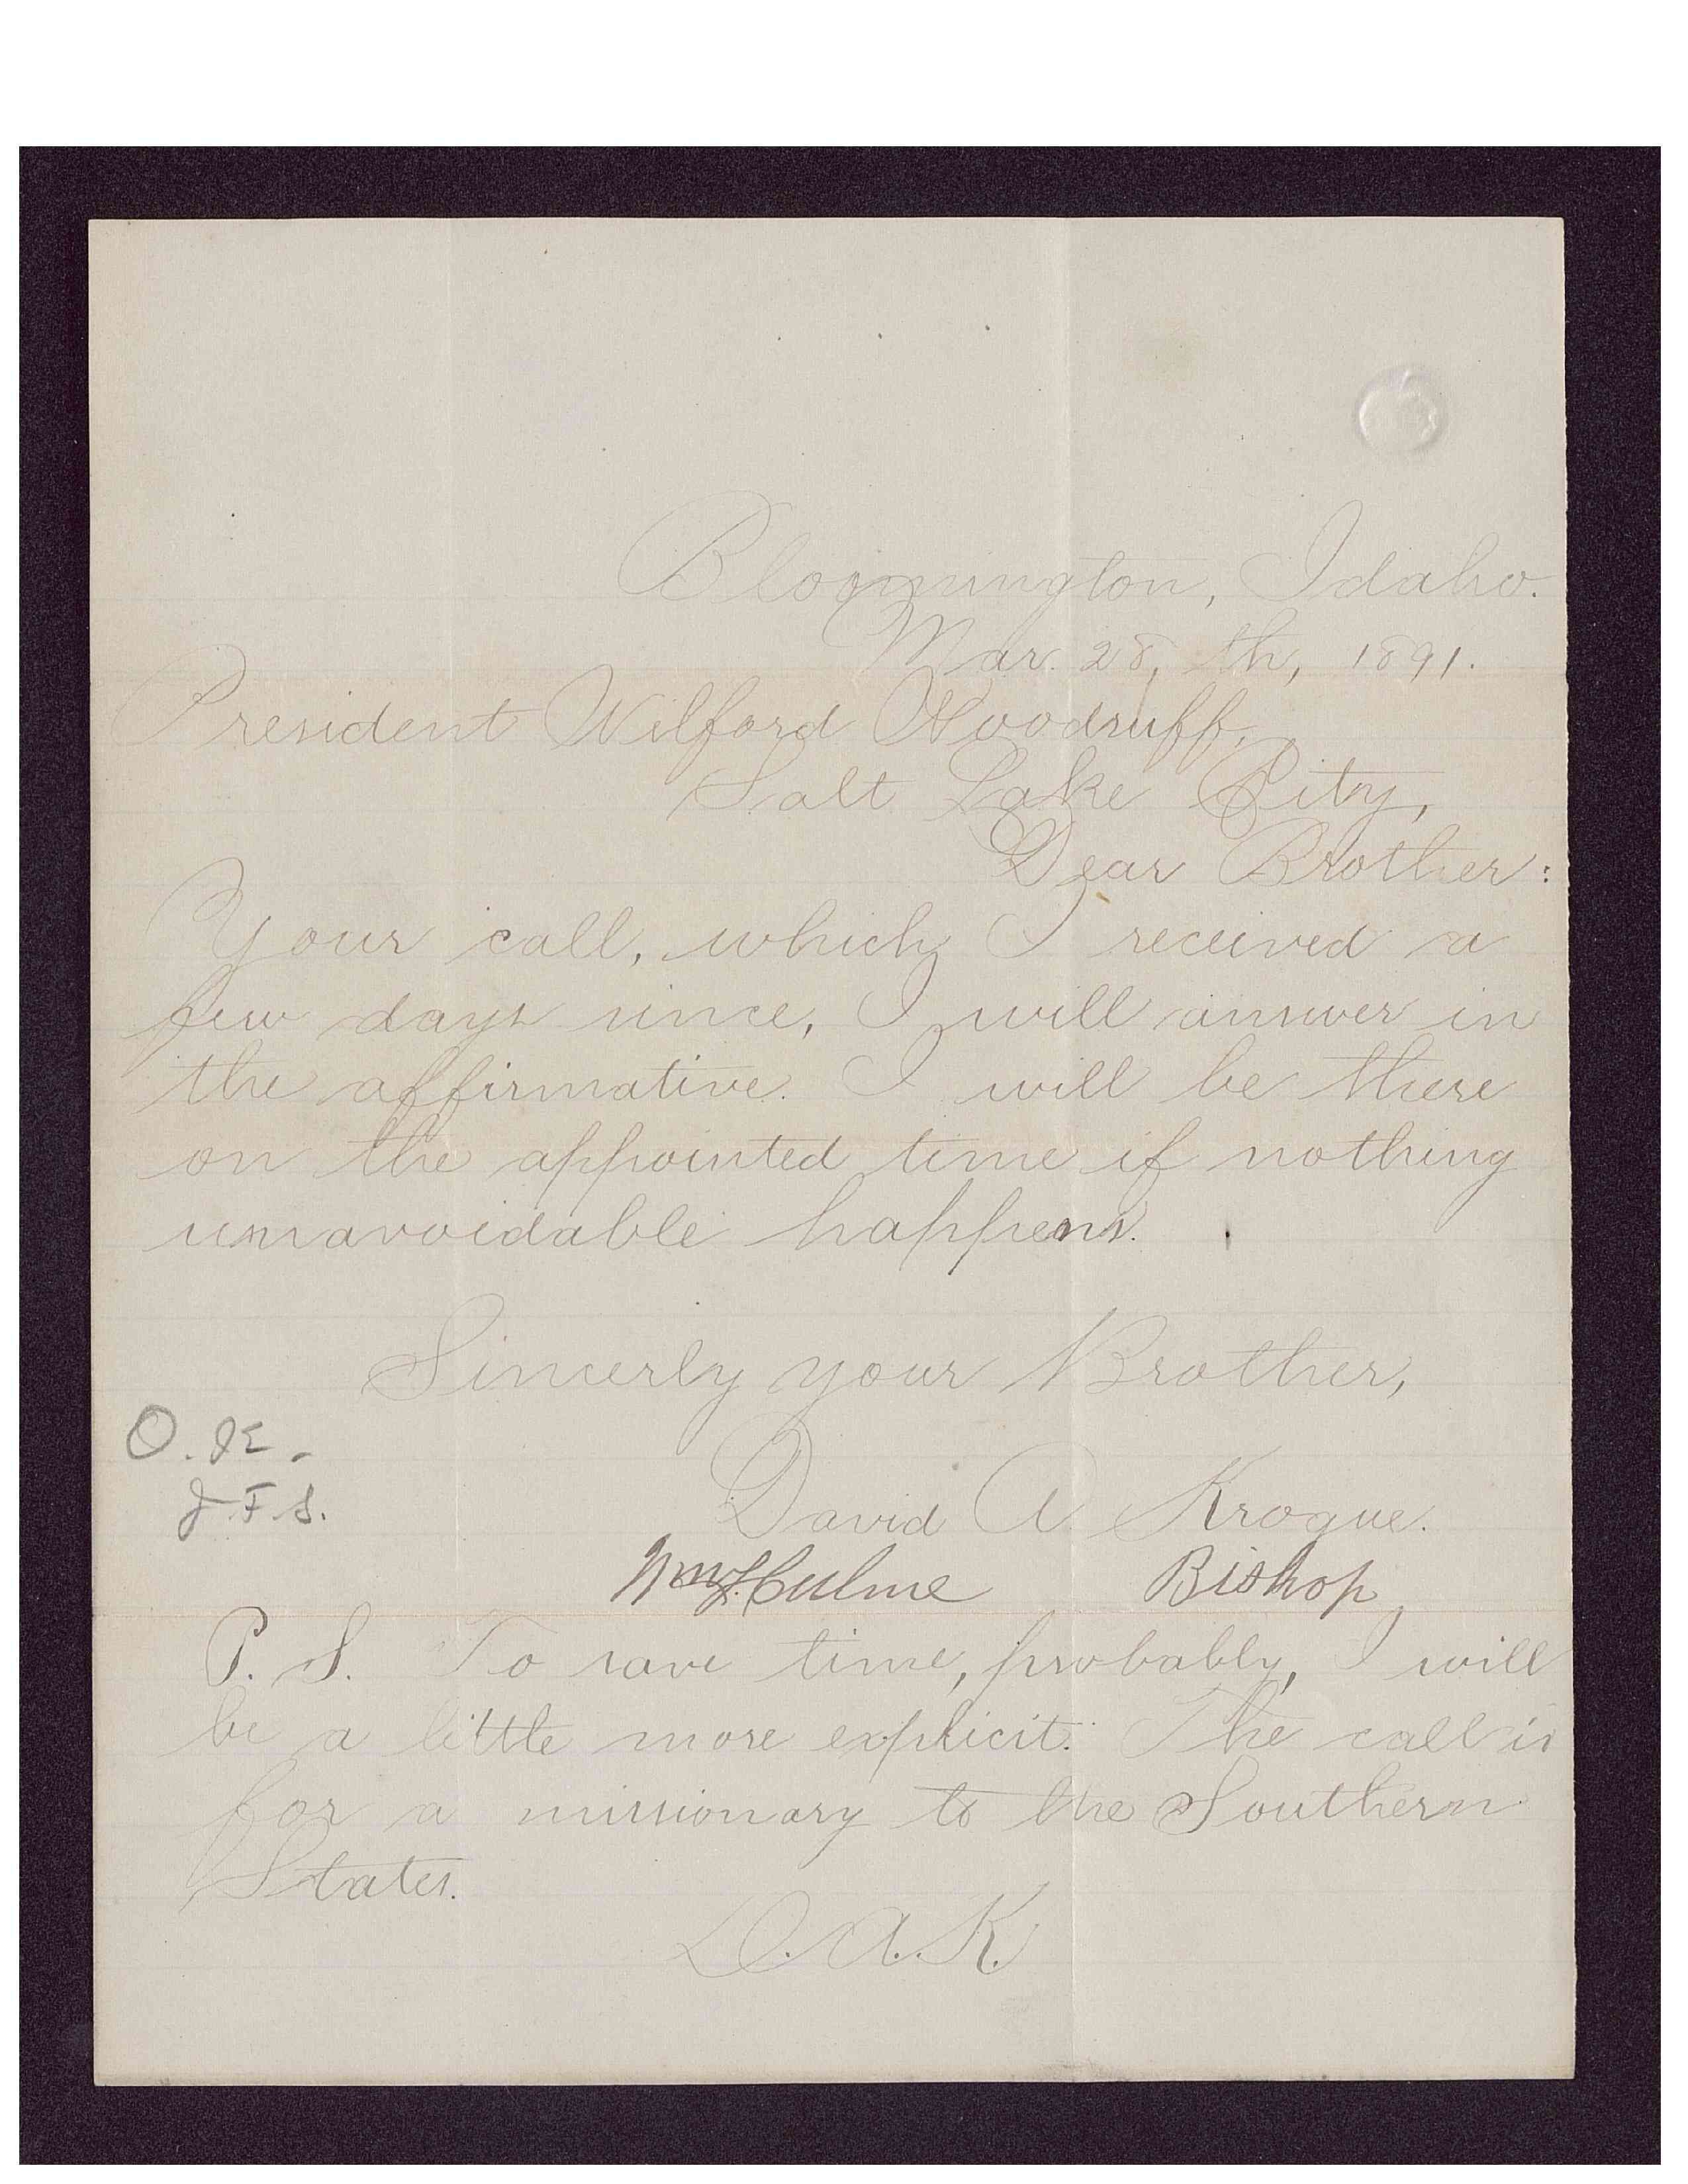 Bloomington, Idaho.
Mar. 28, th, 1891.
President Wilford Woodruff,
Salt Lake City,
Dear Brother:
Your call, which I received a
few days since, I will answer in
the affirmative. I will be there
on the appointed time if nothing
unavoidable happens.
Sincerly your Brother,
O.K.
J.F.S.
David A. Krogue.
Wm Hulme Bishop
P.S. To save time, probably, I will
be a little more explicit. The call is
for a missionary to the Southern
States.
D.A.K.